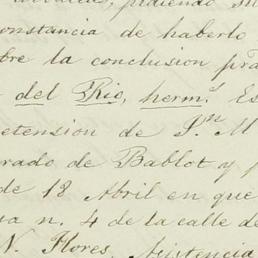 pidiendo
onstancia de haberlo
bre la conclusion
del Rio, herm.s Es
etension de J.n M
rado de Bablot y p
de 18 Abril en que
ua n. 4 de la calle de
N. Flores, Asistencia